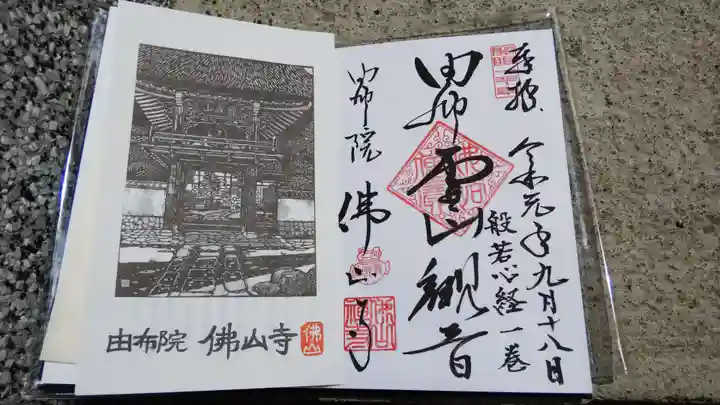 奉拝、令元年九月十八日
般若心経一巻
由布霊山観音
由布院 佛山寺
由布院 佛山寺
佛山